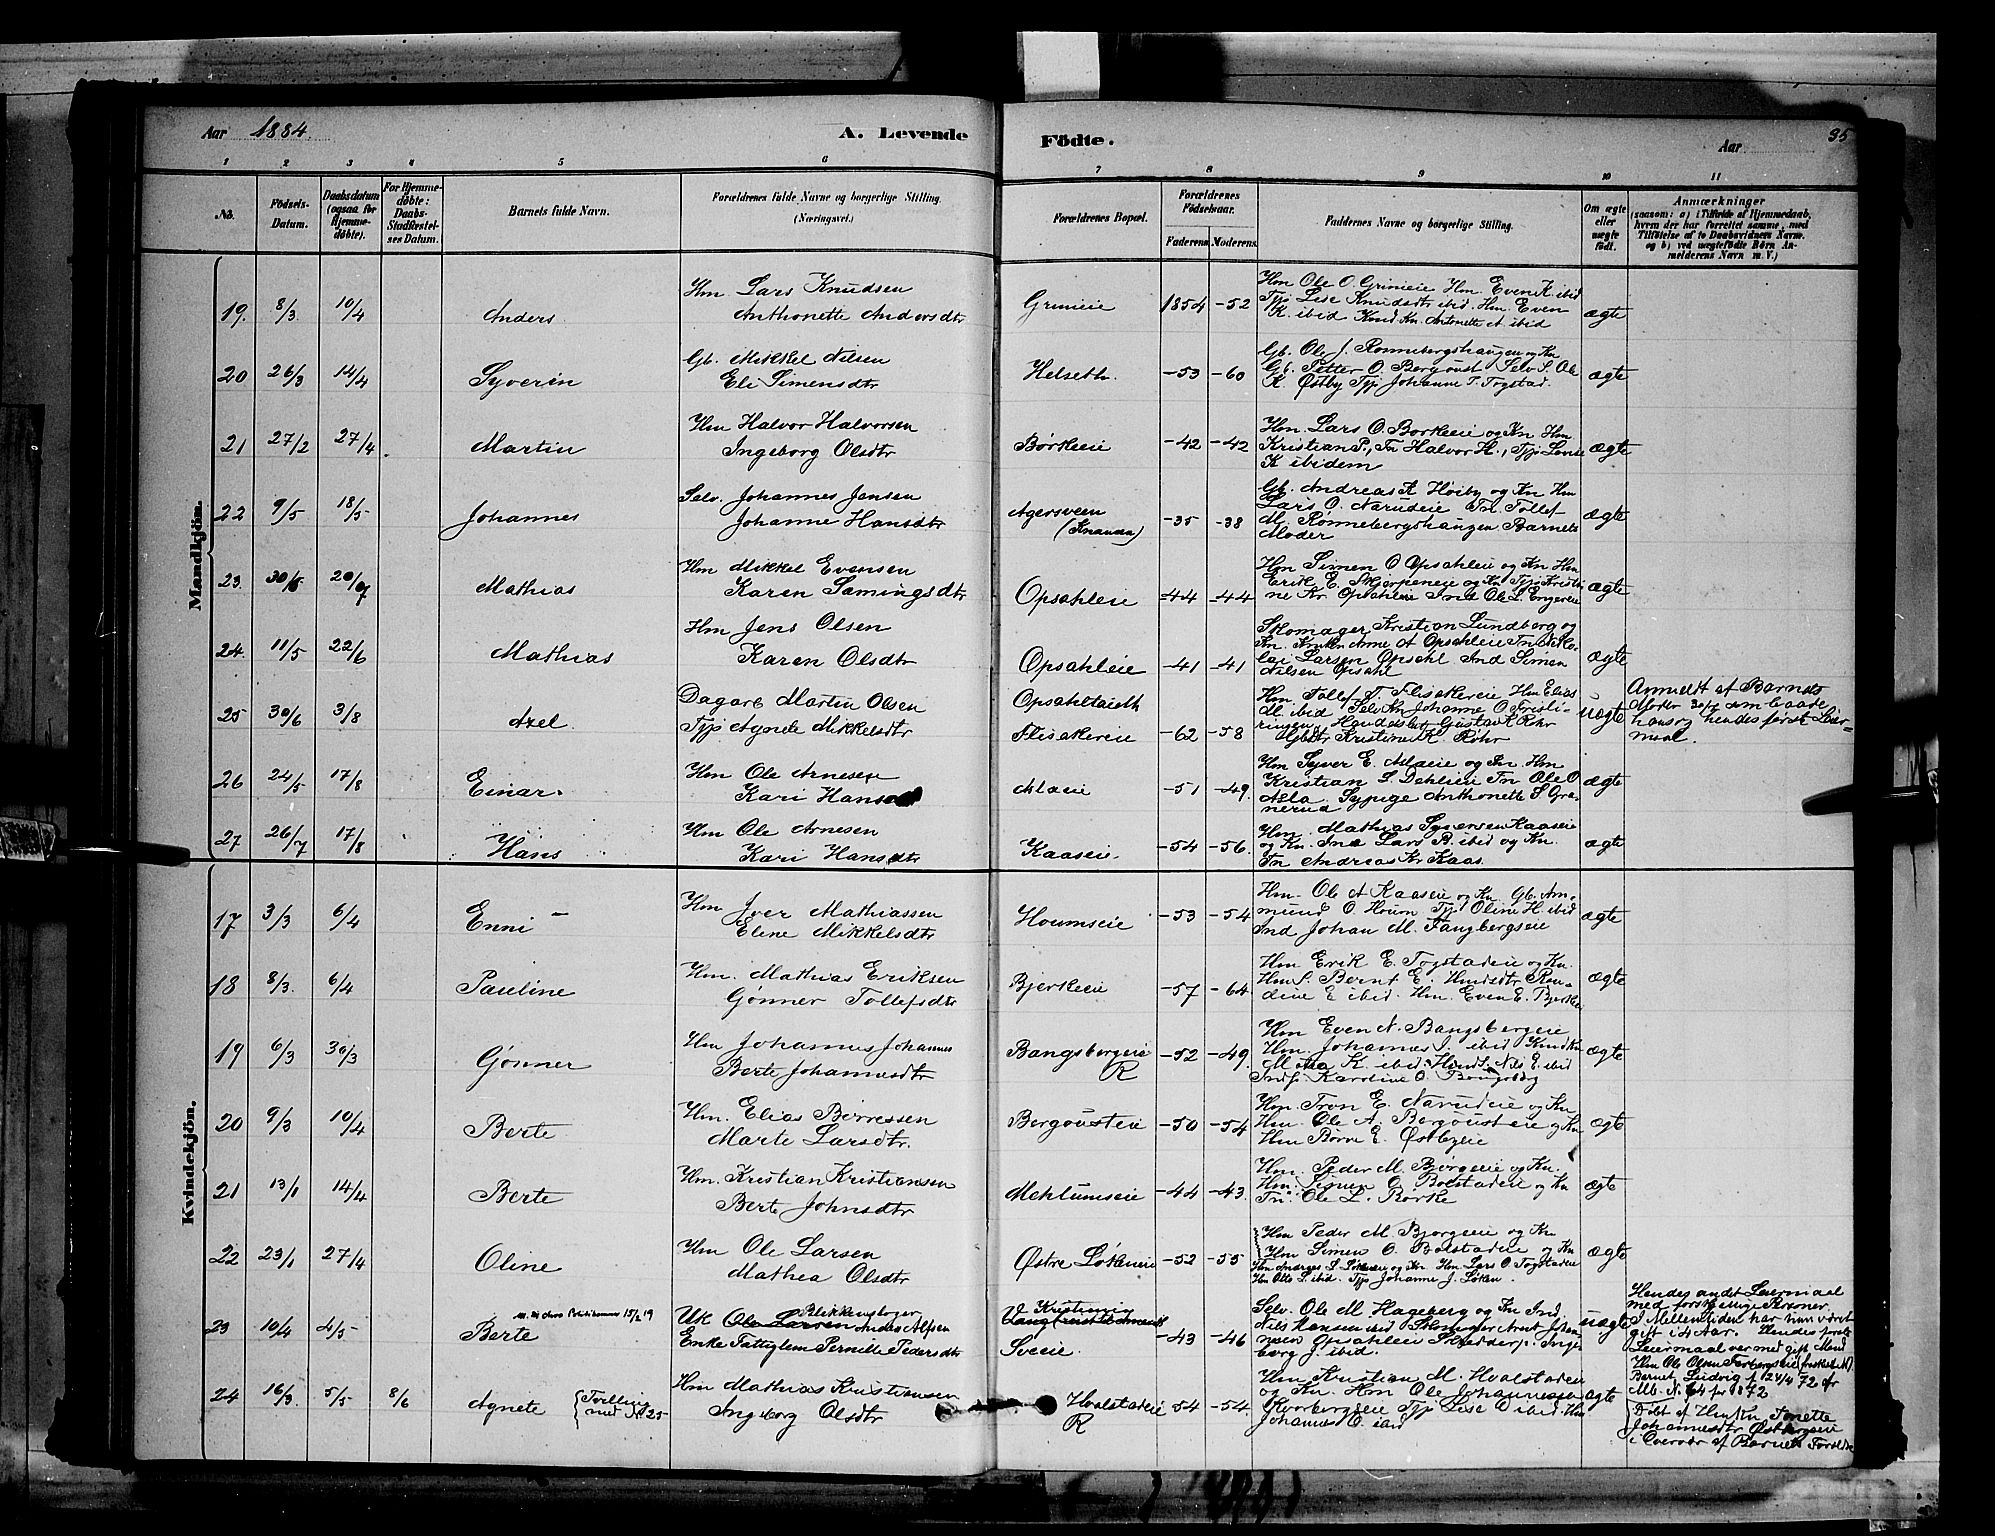 Aar 1884. A. Levende Födte. Aar 35
1 2 3 4 5 6 7 8 9 10 11
No. Födsels-Datum. Daabsdatum (ogsaa for Hjemme-döbte). For Hjemme-döbte: Daabs-Stadfæstel-ses Datum. Barnets fulde Navn. Forældrenes fulde Navne og borgerlige Stilling. (Næringsvei.) Forældrenes Bopæl. Forældrenes Födselsaar. Faderens Moderens Faddernes Navne og borgerlige Stilling. Om ægte eller uægte födt. Anmærkninger (saasom: a) i Tilfælde af Hjemmedaab, hvem der har forrettet samme, med Tilföielse af to Daabsvidners Navne, og b) ved uægtefödte Börn An-melderens Navn m. V.)
Mandkjön.
19. 8/3 10/4 Anders Hm. Lars Knudsen
Anthonette Andersdtr Grimeie 1854 -52 Hm Ole O. Grimeie Hm. Even K. ibid
Tpi Lise Knudsdtr ibid. Hm. Even
K. ibid Knud Kn. Antonette A ibid ægte
20 26/3 14/4 Syverin Gb. Mikkel Nilsen
Eli Simensdtr Helseth. -53 -60 Gb. Ole J. Rønnebergshaugen og Kn
Gb. Petter O. Bergoust Selv S. Ole
K. Østby Tpi Johanne T. Togstad. ægte
21 27/2 27/4 Martin Hm Halvor Halvorsen
Ingeborg Olsdtr Børkeeie -42 -42 Hm. Lars O. Borkeeie og Kn Hm
Kristian P., Tn Halvor H., Tpi Lene
K ibidem ægte
22 9/5 18/5 Johannes Selv. Johannes Jensen
Johanne Hansdtr Agersveen
(Knauden) -35 -38 Gb. Andreas A Høiby og Kn Hm
Lars O. Narudeie Tn. Tollef
M. Rønnebergshaugen Barnets
Moder ægte
23. 20/7 Mathias Hm Mikkel Evensen
Karen Samingsdtr Opsahleie -44 -44 Hm Simen O Opsahleie og Kn Hm
Erik E. Skjørpeneie og Kn Tpi Kristi-
ne Kr. Opsahleie Ind Ole L. Engereie ægte
24. 11/5 22/6 Mathias Hm Jens Olsen
Karen Olsdtr Opsahleie -41 -41 Skomager Kristian Lundberg og
Kn. Anne A Opsahleie Tn Niko-
lai Larsen Opsahl Ind Simen
Nilsen Opsahl ægte
25 30/6 3/8 Axel Dagarb Martin Olsen
Tpi Agnete Mikkelsdtr Opsahleieth
Flisakereie -62 -58 Hm Tollef T. Flisakereie Hm Elias
M. ibid Selv Kn Johanne O Kristi-
Gustav K Røhr
Kristine K. Røhr uægte Anmeldt af Barnets
Moder 30/7 som baade
hans og hendes første Leier-
maal.
26 24/5 17/8 Einar Hm Ole Arnesen
Kari Alaeie -51 -49. Hm Syver E. Alaeie og Kn. Hm
Kristian S. Dehlieie Tn Ole O
Alla. Sypige Anthonette S Gra-
nerud ægte
27 26/7 17/8 Hans Hm Ole Arnesen
Kari Hansdtr Kaaseie. -54 -56. Hm. Mathias Syversen Kaaseie
og Kn. Ind Lars B. ibid og Kn.
Tn Andreas Kr. Kaas. ægte
Kvindekjön.
17 3/3 6/4 Enni Hm Iver Mathiassen
Eline Mikkelsdtr Houmseie -53 -54 Hm. Ole A Kaaseie og Kn. Gb. Am-
mund O. Houm Tpi Oline H. ibid
Ind Johan M. Fangbergseie ægte
18 8/3. 6/4 Pauline Hm. Mathias Eriksen
Gønner Tollefsdtr Bjerkeeie -57 -64 Hm Erik E. Togstadeie og Kn.
Hm S. Bernt E.
E ibid. Hm. Even E. Bjerkeeie ægte
19 6/3 30/3 Gønner Hm Johannes Johannes
Berte Johannesdtr Bangsbergeie
R -52 -49. Hm Even N. Bangsbergeie
Hm. Johannes J. ibid
Nils E. ibid
Karoline O. Bangsberg ægte
20 9/3 10/4 Berte Hm. Elias Børresen
Marte Larsdtr. Bergousteie -50 -54 Hm. Tron E. Narudeie og Kn
Hm. Ole A. Bergousteie og Kn
Hm Børre E. Østbyeie ægte
21 13/1 14/4 Berte Hm. Kristian Kristiansen
Berte Johnsdtr Mehlumseie -44 -43. Hm. Peder M. Bjørgeeie og Kn.
Hm. Simen O. Bolstadeie og Kn
Tn. Ole L. Børke ægte
22 23/1 27/4 Oline Hm Ole Larsen
Mathea Olsdtr Østre Løkeneie -52 -55 Hm Peder M. Bjørgeeie og Kn
Hm Simen O. Bolstadeie og Kn
Hm Andreas L. Løkeneie og Kn. Hm Lars O. Togstadeie
Hm Otto S. ibid. Tpi Johanne J. Løken. ægte
23 10/4 4/5 Berte Ole Larsen
Enke Fattiglem Pernelle Pedersdtr Kristiania
Sveeie -43 -46 Selv. Ole M. Hageberg og Kn Ind.
Nils Hansen ibid Skomager Arnt Johan-
nesen Opsahleie Skrædderp. Inge-
borg J. ibid. uægte Hendes andet Leiermaal
med forskjellige Personer
I Mellemtiden har hun været
gift i 4 Aar. Hendes første
Leiermaal var med gift Mand
Hm. Ole Olsen
Barnet Ludvig f 24/4 72 cfr
Mb. N. 64 for 1872
24 16/3. 5/5 8/6 Agnete {Tvilling
med N. 25 Hm Mathias Kristiansen
Ingeborg Olsdtr Hvalstadeie
R -54 -54 Hm Kristian M. Hvalstadeie
og Kn. Hm Ole Johannesen
Kvarbergseie Tpi Lise O ibid. Hm
Johannes O. ibid ægte Døbt af Tonette
Johannesdtr Østbergseie
i Overvær af Barnets Forældre